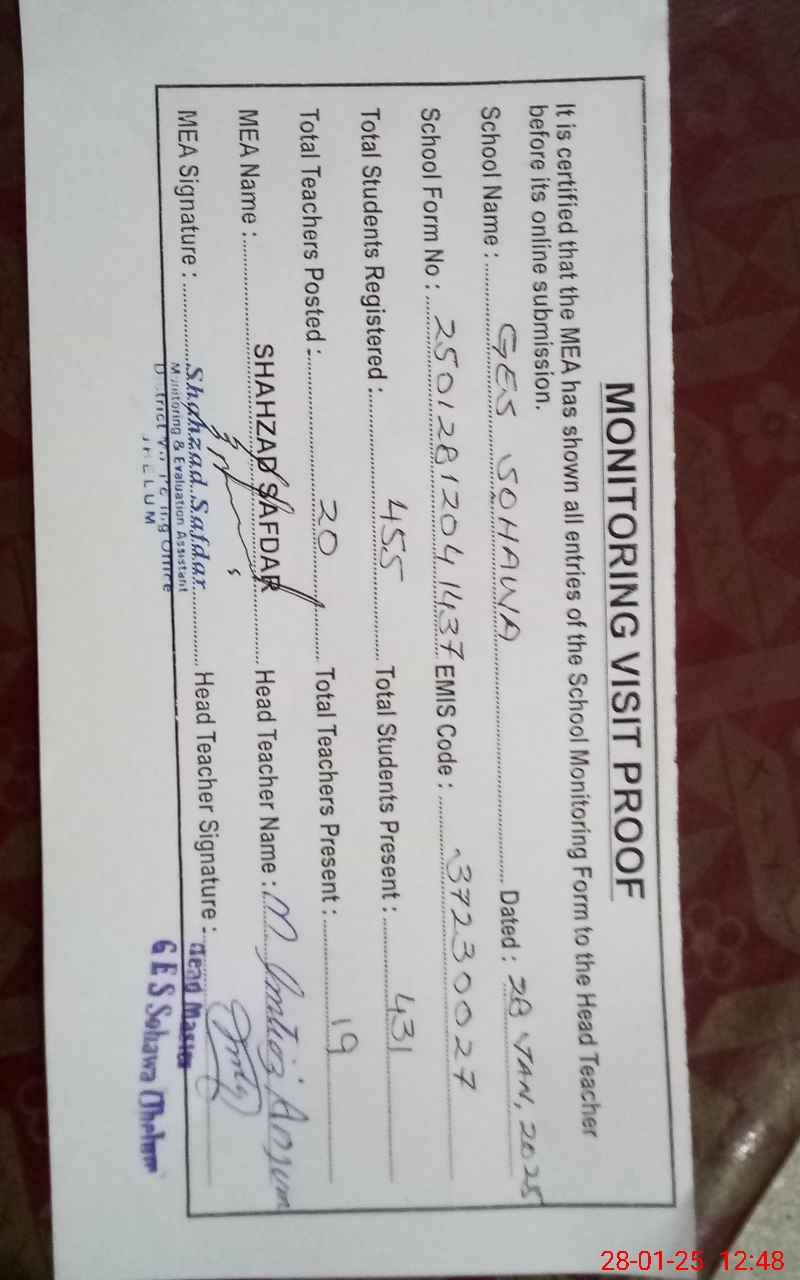 MONITORING VISIT PROOF
It is certified that the MEA has shown all entries of the School Monitoring Form to the Head Teacher
before its online submission.
School Name : GES SOHAWA Dated : 28 JAN, 2025
School Form No : 25012812041437 EMIS Code : 37230027
Total Students Registered : 455 Total Students Present : 431
Total Teachers Posted : 20 Total Teachers Present : 19
MEA Name : SHAHZAD SAFDAR Head Teacher Name : M Imtiaz Anjum
MEA Signature : Shahzad Safdar Head Teacher Signature :
Monitoring & Evaluation Assistant
District Monitoring Office
JHELUM
Head Master
G E S Sohawa (Jhelum
28-01-25 12:48